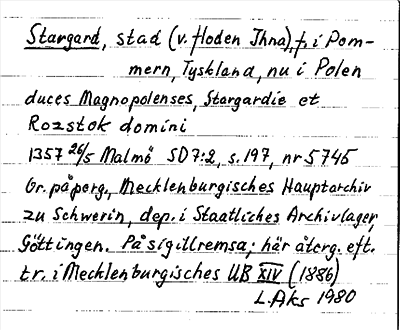 Stargard, stad (v. floden Ihna), f. i Pom-
mern, Tyskland, nu i Polen
duces Magnopolenses, Stargardie et
Rozstok domini
1357 26/5 Malmö SD 7:2, s. 197, nr 5745
Or. på perg., Mecklenburgisches Hauptarchiv
zu Schwerin, dep. i Staatliches Archivlager,
Göttingen. På sigillremsa; här återg. eft.
tr. i Mecklenburgisches UB XIV (1886)
L Aks 1980